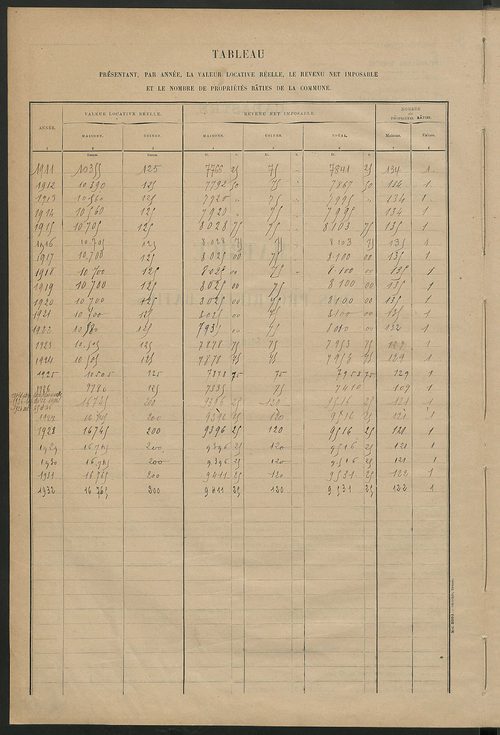 TABLEAU
PRÉSENTANT, PAR ANNÉE, LA VALEUR LOCATIVE RÉELLE, LE REVENU NET IMPOSABLE
ET LE NOMBRE DE PROPRIÉTÉS BÂTIES DE LA COMMUNE.
ANNÉE. VALEUR LOCATIVE RÉELLE. REVENU NET IMPOSABLE. NOMBRE DE PROPRIÉTÉS BÂTIES.
MAISONS. USINES. MAISONS. USINES. TOTAL. Maisons. Usines.
1911 10355 125 7766 25 75 7841 25 134 1
1912 10390 125 7792 50 75 7867 50 134 1
1913 10560 125 7920 75 7995 134 1
1914 10560 125 7920 75 7995 134 1
1915 10705 125 8028 75 75 8103 75 135 1
1916 10705 125 8028 75 75 8103 75 135 1
1917 10700 125 8025 00 75 8100 00 135 1
1918 10700 125 8025 00 75 8100 00 135 1
1919 10700 125 8025 00 75 8100 00 135 1
1920 10700 125 8025 00 75 8100 00 135 1
1921 10700 125 8025 00 75 8100 00 135 1
1922 10580 125 7935 75 132 1
1923 10505 125 7878 75 75 7953 75 129 1
1924 10505 125 7878 75 75 7953 75 129 1
1925 10505 125 7878 75 75 129 1
1926 9780 125 7335 75 7410 109 1
16745 200 9396 25 120 9516 25 121 1
1927 16705 200 25 120 9516 25 121 1
1928 16745 200 9396 25 120 9516 25 121 1
1929 200 9396 25 120 9516 25 121 1
1930 200 9396 25 120 9516 25 121 1
1931 16765 200 9411 25 120 9531 25 122 1
1932 16765 200 9411 25 120 9531 25 122 1